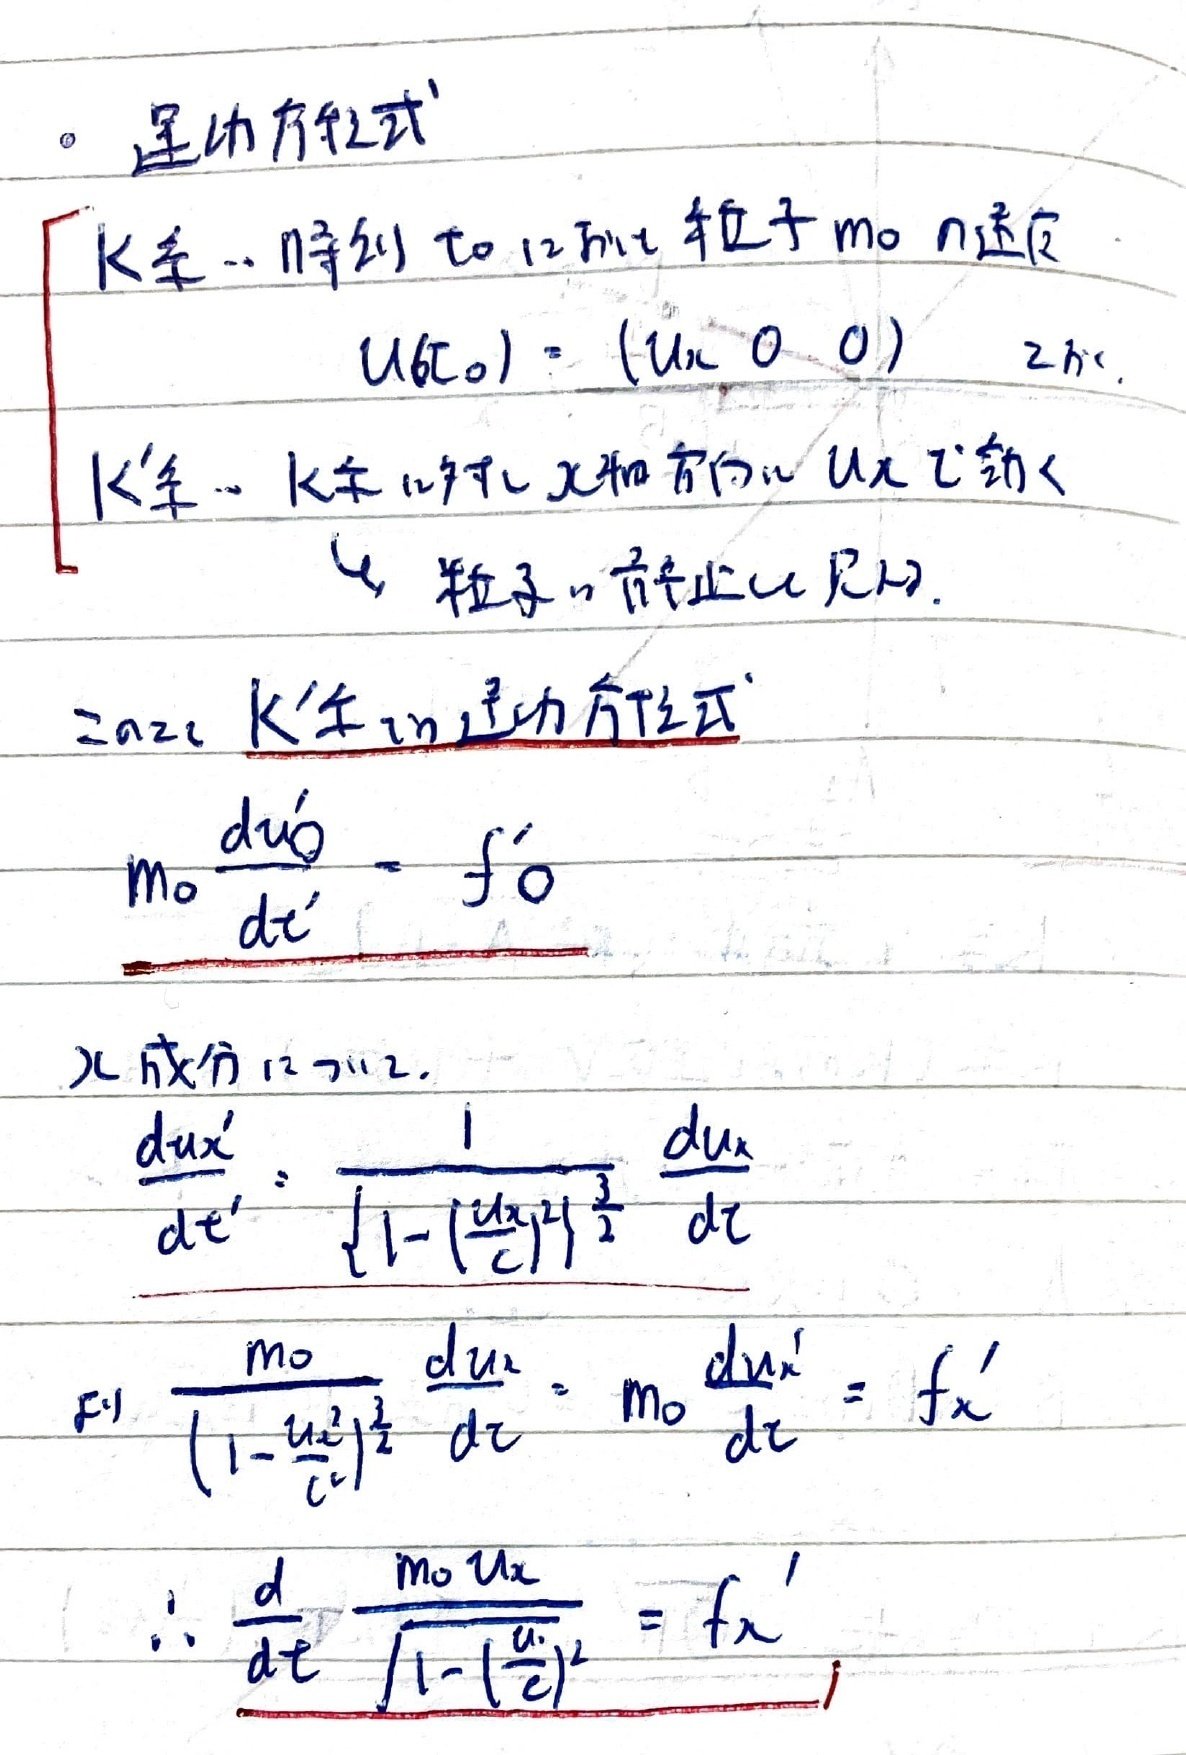 ・運動方程式
K系‥時刻 t₀ において 粒子 m₀ の速度
u(t₀) = (uₓ 0 0) とおく.
K'系‥ K系に対して x軸方向に uₓ で動く
↳ 粒子は静止して見える.
このとき K'系での運動方程式
m₀ du'₀/dt' = f'₀
x成分について.
duₓ'/dt' = 1/{1-(uₓ/c)²}^(3/2) duₓ/dt
より m₀/(1-uₓ²/c²)^(3/2) duₓ/dt = m₀ duₓ'/dt = fₓ'
∴ d/dt m₀uₓ/√(1-(u/c)²) = fₓ'